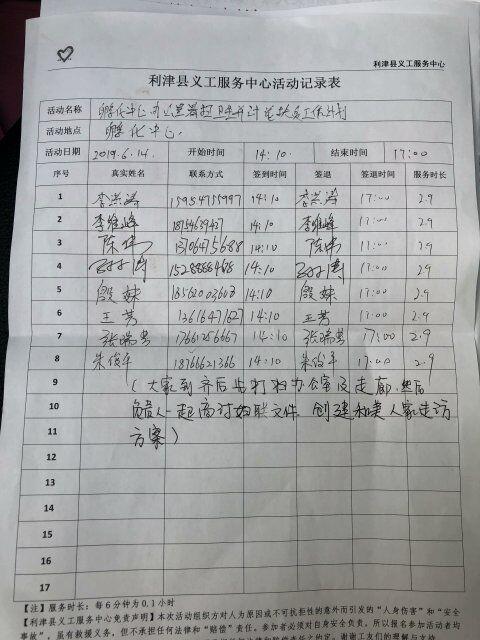 利津县义工服务中心
利津县义工服务中心活动记录表
活动名称 孵化中心办公室打扫卫生并讨论妇联工作计划
活动地点 孵化中心.
活动日期 2019.6.14. 开始时间 14:10. 结束时间 17:00
序号 真实姓名 联系方式 签到时间 签退 签退时间 服务时长
1 李洪涛 15954715997 14:10 李洪涛 17:00 2.9
2 李维峰 14:10 李维峰 17:00 2.9
3 陈伟 14:10 陈伟 17:00 2.9
4 14:10 17:00 2.9
5 殷妹 14:10 殷妹 17:00 2.9
6 王芳 13616471627 14:10 王芳 17:00 2.9
7 张瑞芳 14:10 张瑞芳 17:00 2.9
8 朱俊平 18766621366 14:10 朱俊平 17:00 2.9
9 (大家到齐后先打扫办公室及走廊.然后
10 负责人一起商讨妇联文件 创建和美人家走访
11 方案)
12
13
14
15
16
17
【注】服务时长:每6分钟为0.1小时
【利津县义工服务中心免责声明】本次活动组织方对人为原因或不可抗拒性的意外而引发的“人身伤害”和“安全
事故”,虽有救援义务,但不承担任何法律和“赔偿”责任。参加者必须对自身安全负责。所以报名参加活动者均